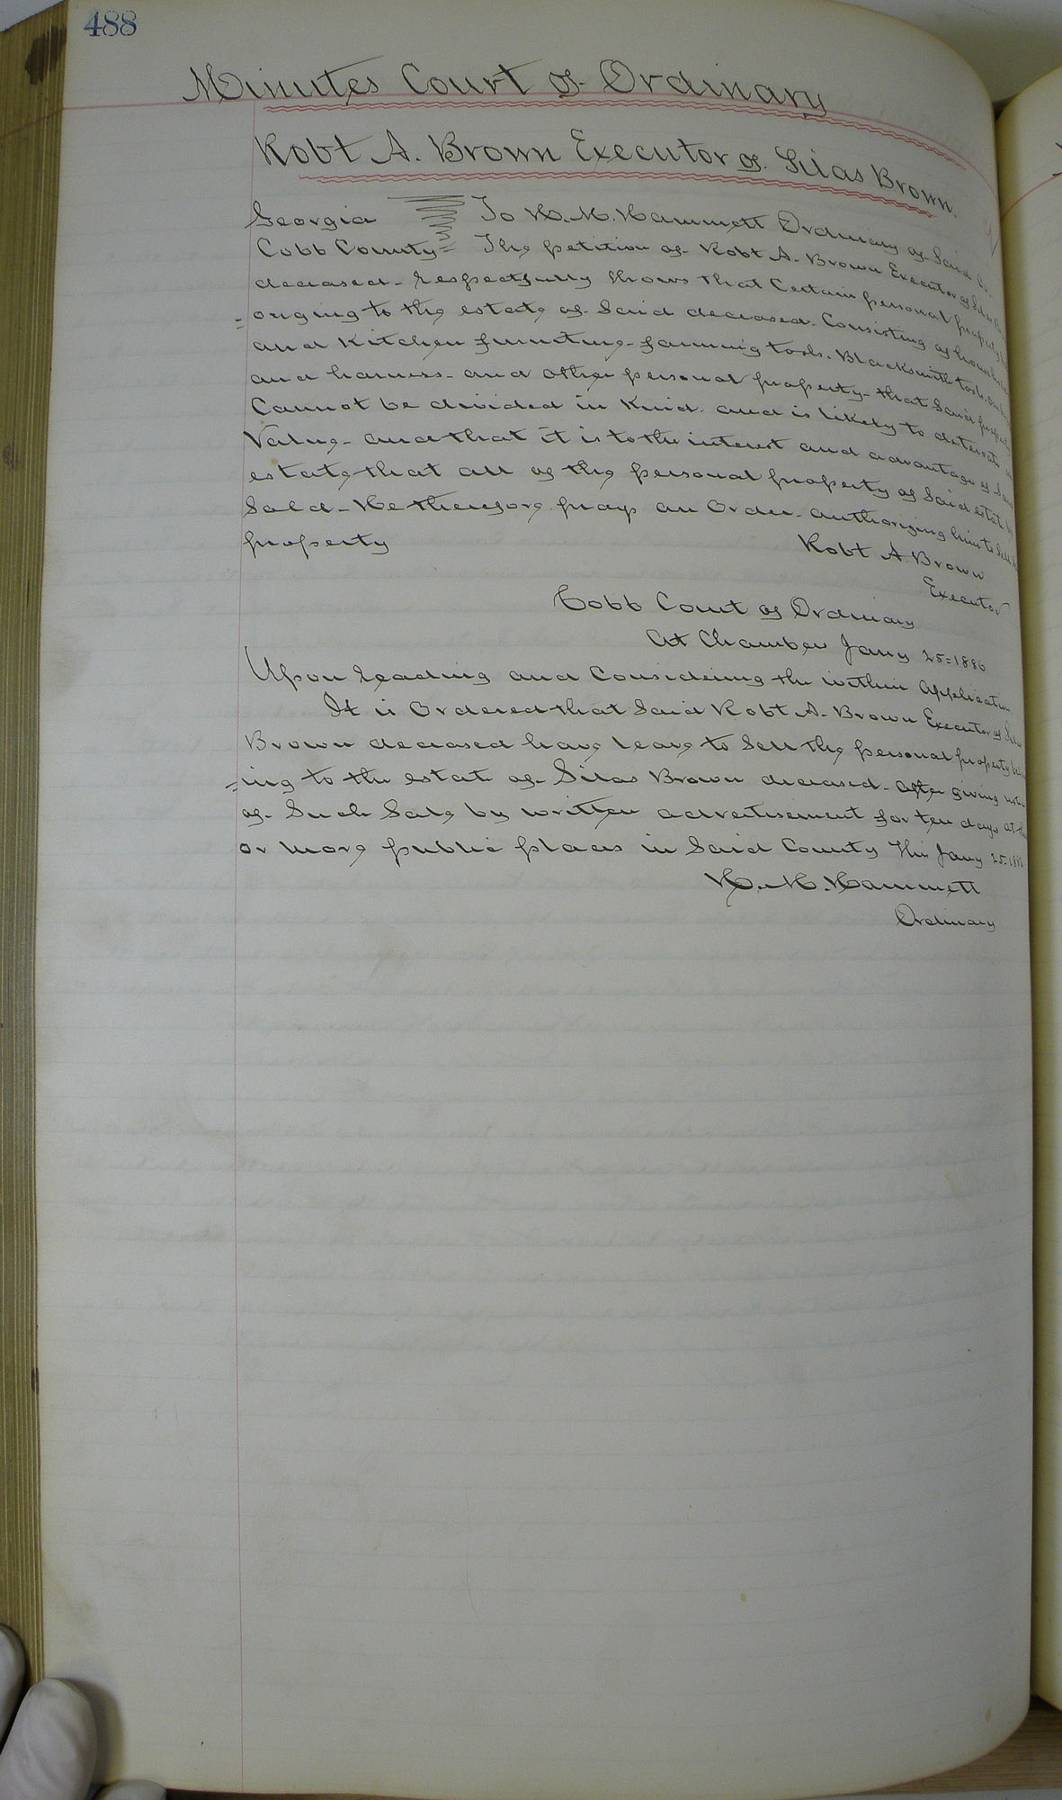 488
Minutes Court of Ordinary
Robt A. Brown Executor of Silas Brown.
Georgia To H. M. Hammett Ordinary of Said Co.
Cobb County The petition of Robt A. Brown Executor of Silas
deceased. respectfully shows that Certain personal property
onging to the estate of Said deceased. Consisting of
and Kitchen furniture. farming tools. Blacksmith tools.
and harness. and other personal property. that Said property
Cannot be divided in Kind. and is likely to deteriorate in
Value. and that it is to the interest and advantage of Said
estate that all of the personal property of Said estate be
Sold. He therefore prays an Order. authorizing him to Sell
property
Robt A Brown
Executor
Cobb Court of Ordinary
At Chambers Jany 25=1886
Upon reading and Considering the within application
It is Ordered that Said Robt A. Brown Executor of Silas
Brown deceased have leave to Sell the personal property
=ing to the estate of Silas Brown deceased. after giving
of Such Sale by written advertisement for ten days at
or more public places in Said County This Jany 25.
H. M. Hammett
Ordinary